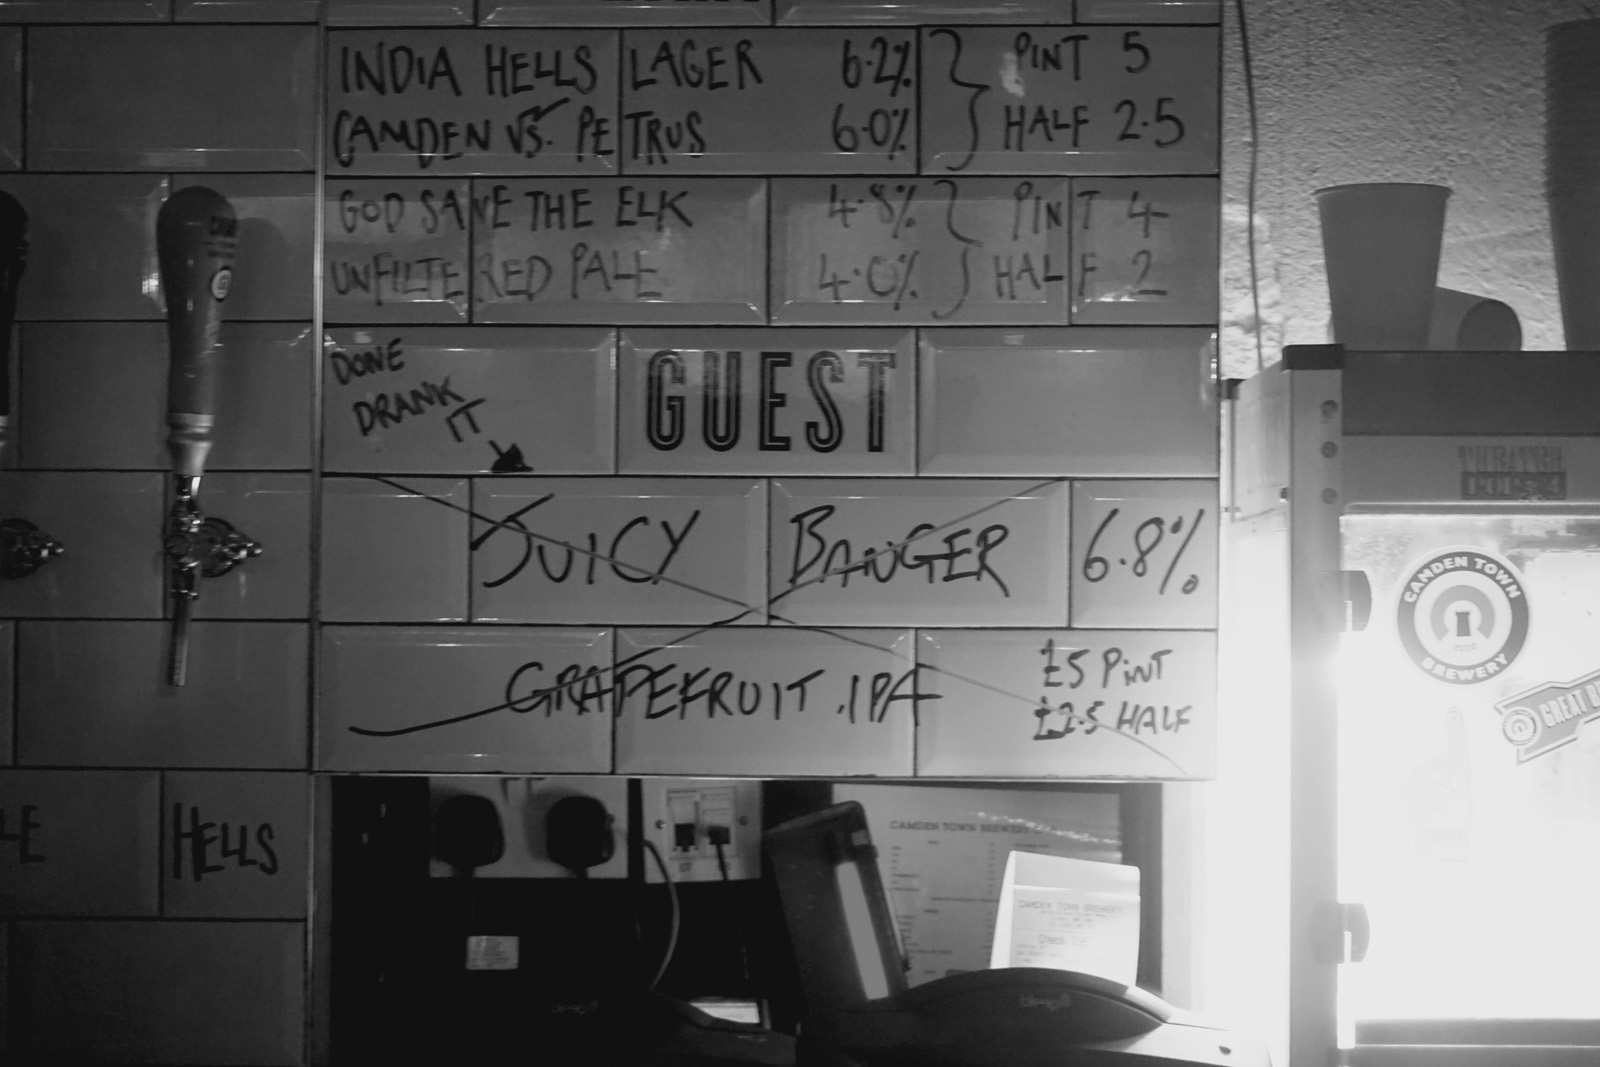 INDIA HELLS LAGER 6.2% PINT 5
CAMDEN VS. PETRUS 6.0% HALF 2.5
GOD SAVE THE ELK 4.8% PINT 4
UNFILTERED PALE 4.0% HALF 2
DONE
DRANK
IT
GUEST
JUICY BANGER 6.8%
GRAPEFRUIT .IPA
£5 PINT
£2.5 HALF
HELLS
CAMDEN TOWN
BREWERY
2010
GREAT
CAMDEN TOWN BREWERY
CAMDEN TOWN BREWERY